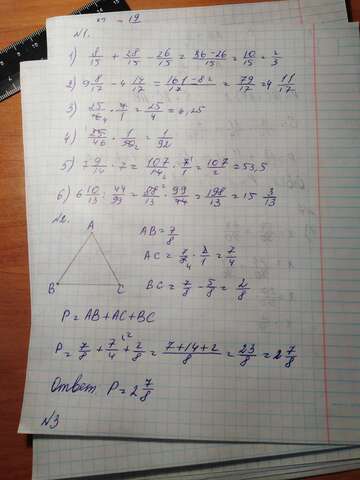 19
№1.
1) 8/15 + 28/15 - 26/15 = 36-26/15 = 10/15 = 2/3
2) 9 8/17 - 4 14/17 = 161-82/17 = 79/17 = 4 11/17
3) 25/ · /1 = 25/4 = 6,25
4) 25/46 · 1/50 2 = 1/92
5) 9/14 · 7 = 107/14 2 · 7/1 = 107/2 = 53,5
6) 6 10/13 : 44/99 = 88/13 · 99/44 = 198/13 = 15 3/13
№2.
A
B
C
AB = 7/8
AC = 7/8 4 · 2/1 = 7/4
BC = 7/8 - 5/8 = 2/8
P = AB + AC + BC
P = 7/8 + 7/4 + 2/8 = 7+14+2/8 = 23/8 = 2 7/8
Ответ P = 2 7/8
№3